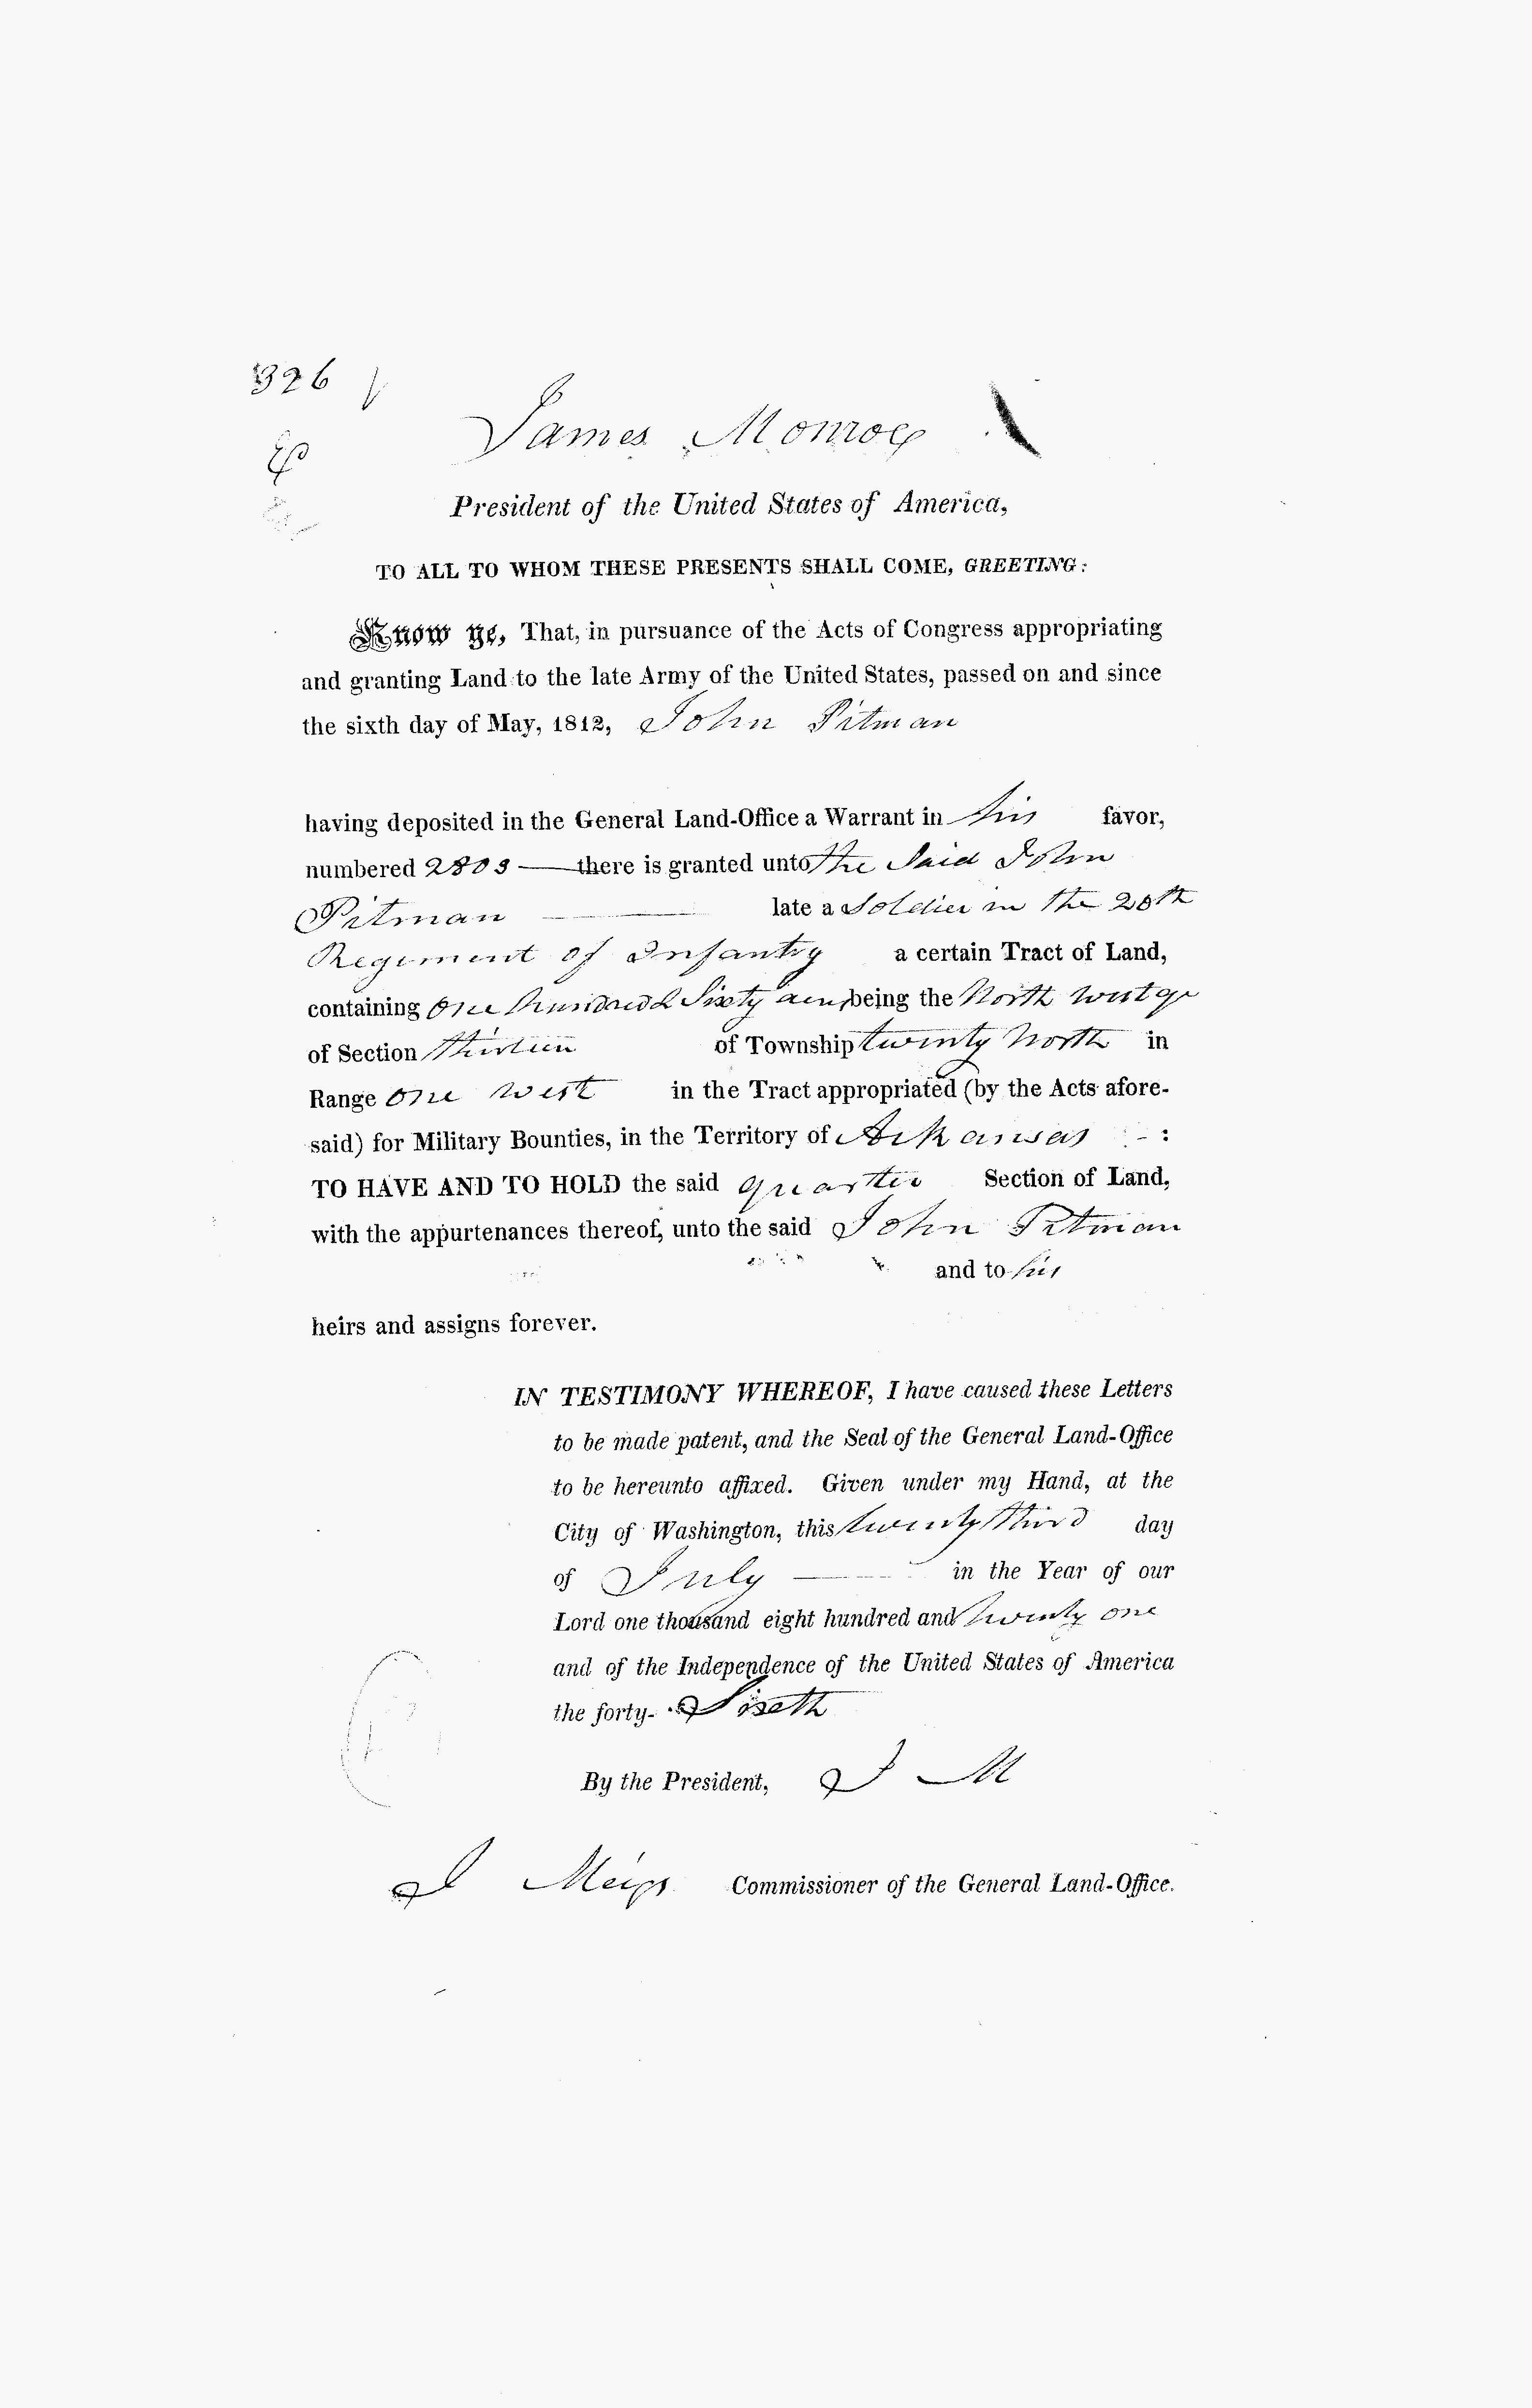 326
James Monroe
President of the United States of America,
TO ALL TO WHOM THESE PRESENTS SHALL COME, GREETING:
Know ye, That, in pursuance of the Acts of Congress appropriating
and granting Land to the late Army of the United States, passed on and since
the sixth day of May, 1812, John Pitman
having deposited in the General Land-Office a Warrant in his favor,
numbered 2803 — there is granted unto the said John
Pitman — late a Soldier in the 20th
Regiment of Infantry a certain Tract of Land,
containing One hundred & Sixty acres, being the North west qr
of Section Thirteen of Township twenty North in
Range One West in the Tract appropriated (by the Acts afore-
said) for Military Bounties, in the Territory of Arkansas - :
TO HAVE AND TO HOLD the said quarter Section of Land,
with the appurtenances thereof, unto the said John Pitman
and to his
heirs and assigns forever.
IN TESTIMONY WHEREOF, I have caused these Letters
to be made patent, and the Seal of the General Land-Office
to be hereunto affixed. Given under my Hand, at the
City of Washington, this twenty third day
of July — in the Year of our
Lord one thousand eight hundred and twenty one
and of the Independence of the United States of America
the forty- Sixth
By the President, J M
J Meigs Commissioner of the General Land-Office.